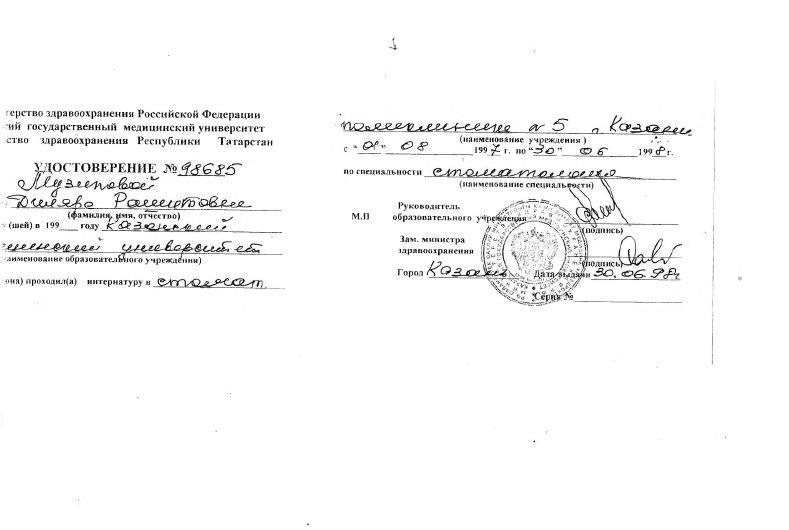 терство здравоохранения Российской Федерации
ий государственный медицинский университет
ство здравоохранения Республики Татарстан
УДОСТОВЕРЕНИЕ № 98685
Диляре Рашитовне
(фамилия, имя, отчество)
(шей) в 199 году Казанский
университет
аименование образовательного учреждения)
она) проходил(а) интернатуру в стомат.
поликлинике № 5 г. Казани
(наименование учреждения )
с "01" 08 1997 г. по "30" 06 1998 г.
по специальности стоматология
(наименование специальности)
Руководитель
М.П образовательного учреждения
(подпись)
Зам. министра
здравоохранения
(подпись)
Город Казань Дата выдачи 30.06.98г
Серия №